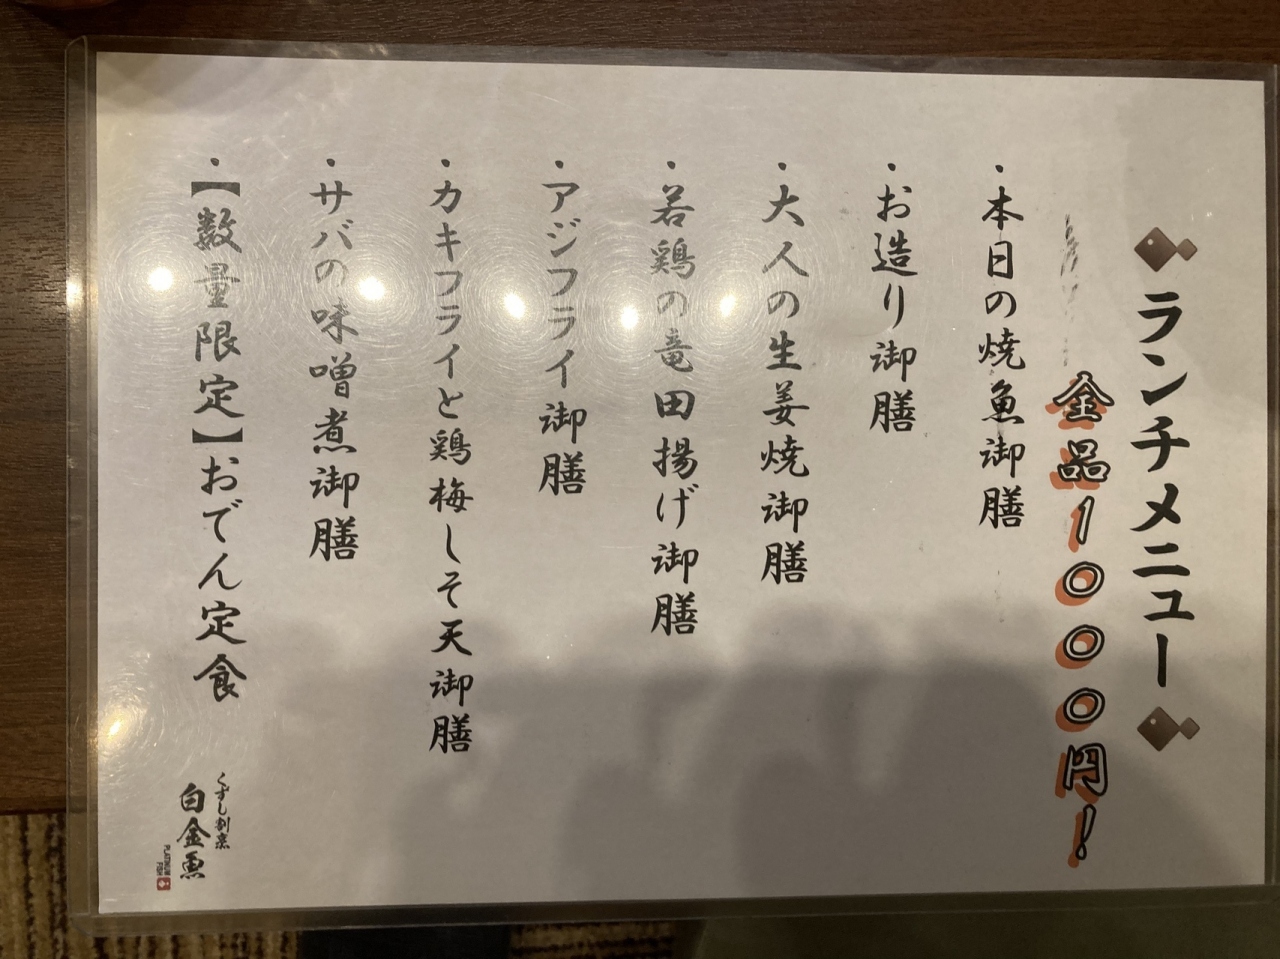 ランチメニュー
全品1000円！
・本日の焼魚御膳
・お造り御膳
・大人の生姜焼御膳
・若鶏の竜田揚げ御膳
・アジフライ御膳
・カキフライと鶏梅しそ天御膳
・サバの味噌煮御膳
・【数量限定】おでん定食
くずし割烹
白金魚
PLATINUM
FISH